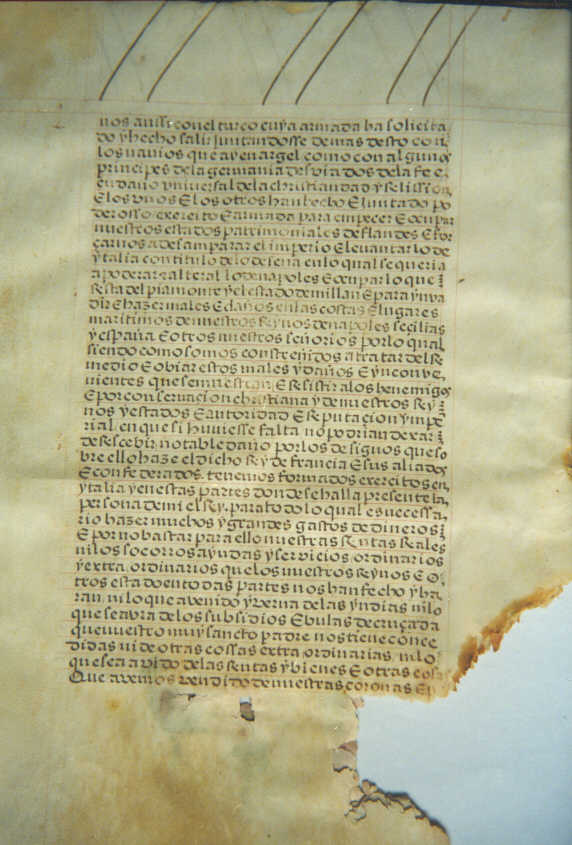 nos assi con el turco cuya armada ha solicita
do y hecho salir juntandosse demas desto con
los navios que ay en argel como con algunos
principes de la germania desviados de la fe e
en daño universal de la christiandad y Religion
E los unos E los otros han hecho E juntado po
derosso exercito E armada para empecer E ocupar
nuestros estados patrimoniales de flandes E for
çarnos a desamparar el imperio E levantar lo de
ytalia con titulo de lo de sena en lo qual se queria
apoderar E alterar lo de napoles E ocupar lo que
Resta del piamonte y el estado de millan E para ynva
dir E hazer males E daños en las costas E lugares
maritimos de nuestros Reynos de napoles secilias
y españa E otros nuestros señorios por lo qual
siendo como somos constreñidos a tratar del Re
medio E obiar estos males y daños E ynconve
nientes que se muestran E Resistir a los henemigos
E por conservacion christiana y de nuestros Rey
nos y estados E autoridad E Reputacion ympe
rial en que si huviesse falta no podrian dexar
de Rescebir notable daño por los desiguos que so
bre ello haze el dicho Rey de francia E sus aliados
E confederados. tenemos formados exercitos en
ytalia y en estas partes donde se halla presente la
persona de mi el Rey. para todo lo qual es necessa
rio hazer muchos y grandes gastos de dineros
E por no bastar para ello nuestras Rentas Reales
ni los socorros ayudas y servicios ordinarios
y extra ordinarios que los nuestros Reynos E o
tros estado en todas partes nos han fecho y ha
ran ni lo que a venido y verna de las yndias ni lo
que se avra de los subsidios E bulas de cruçada
que nuestro muy sancto padre nos tiene conce
didas ni de otras cossas extra ordinarias, ni lo
que sea avido de las Rentas y bienes E otras cosa
Que avemos vendido de nuestras coronas E